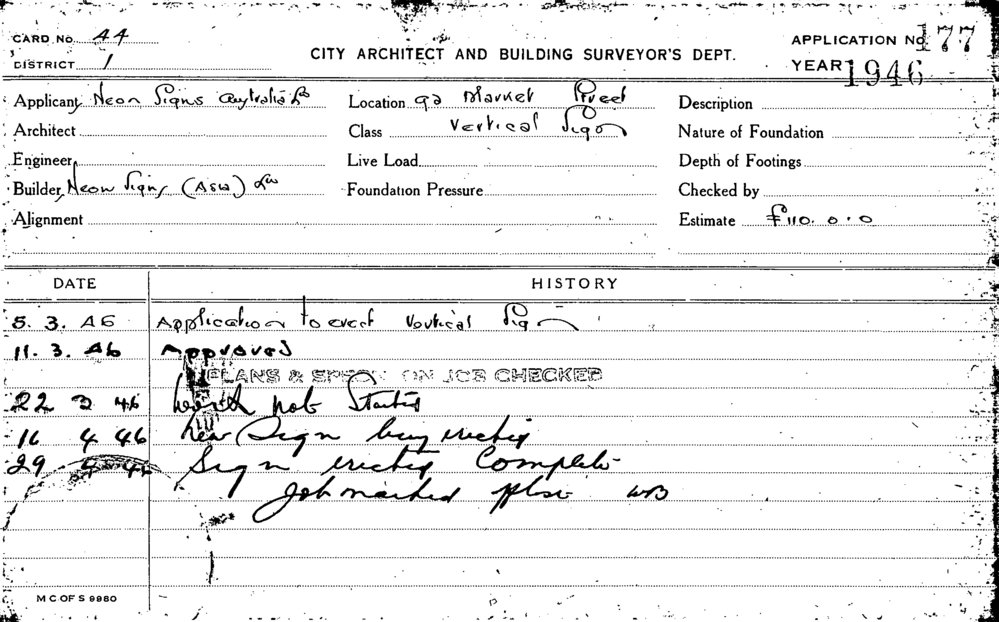 CARD No. 44
DISTRICT 1
CITY ARCHITECT AND BUILDING SURVEYOR'S DEPT.
APPLICATION No. 177
YEAR 1946
Applicant Neon Signs Australia Ld Location 92 Market Street Description
Architect Class Vertical Sign Nature of Foundation
Engineer Live Load Depth of Footings
Builder Neon Signs (Asia) Ld Foundation Pressure Checked by
Alignment Estimate £110. 0. 0
DATE HISTORY
5. 3. 46 Application to erect Vertical Sign
11. 3. 46 Approved
PLANS & SPECN. ON JOB CHECKED
22 3 46 Work not Started
16 4 46 New Sign being erected
29 4 46 Sign erected Complete
Job marked WB
M C OF S 9980